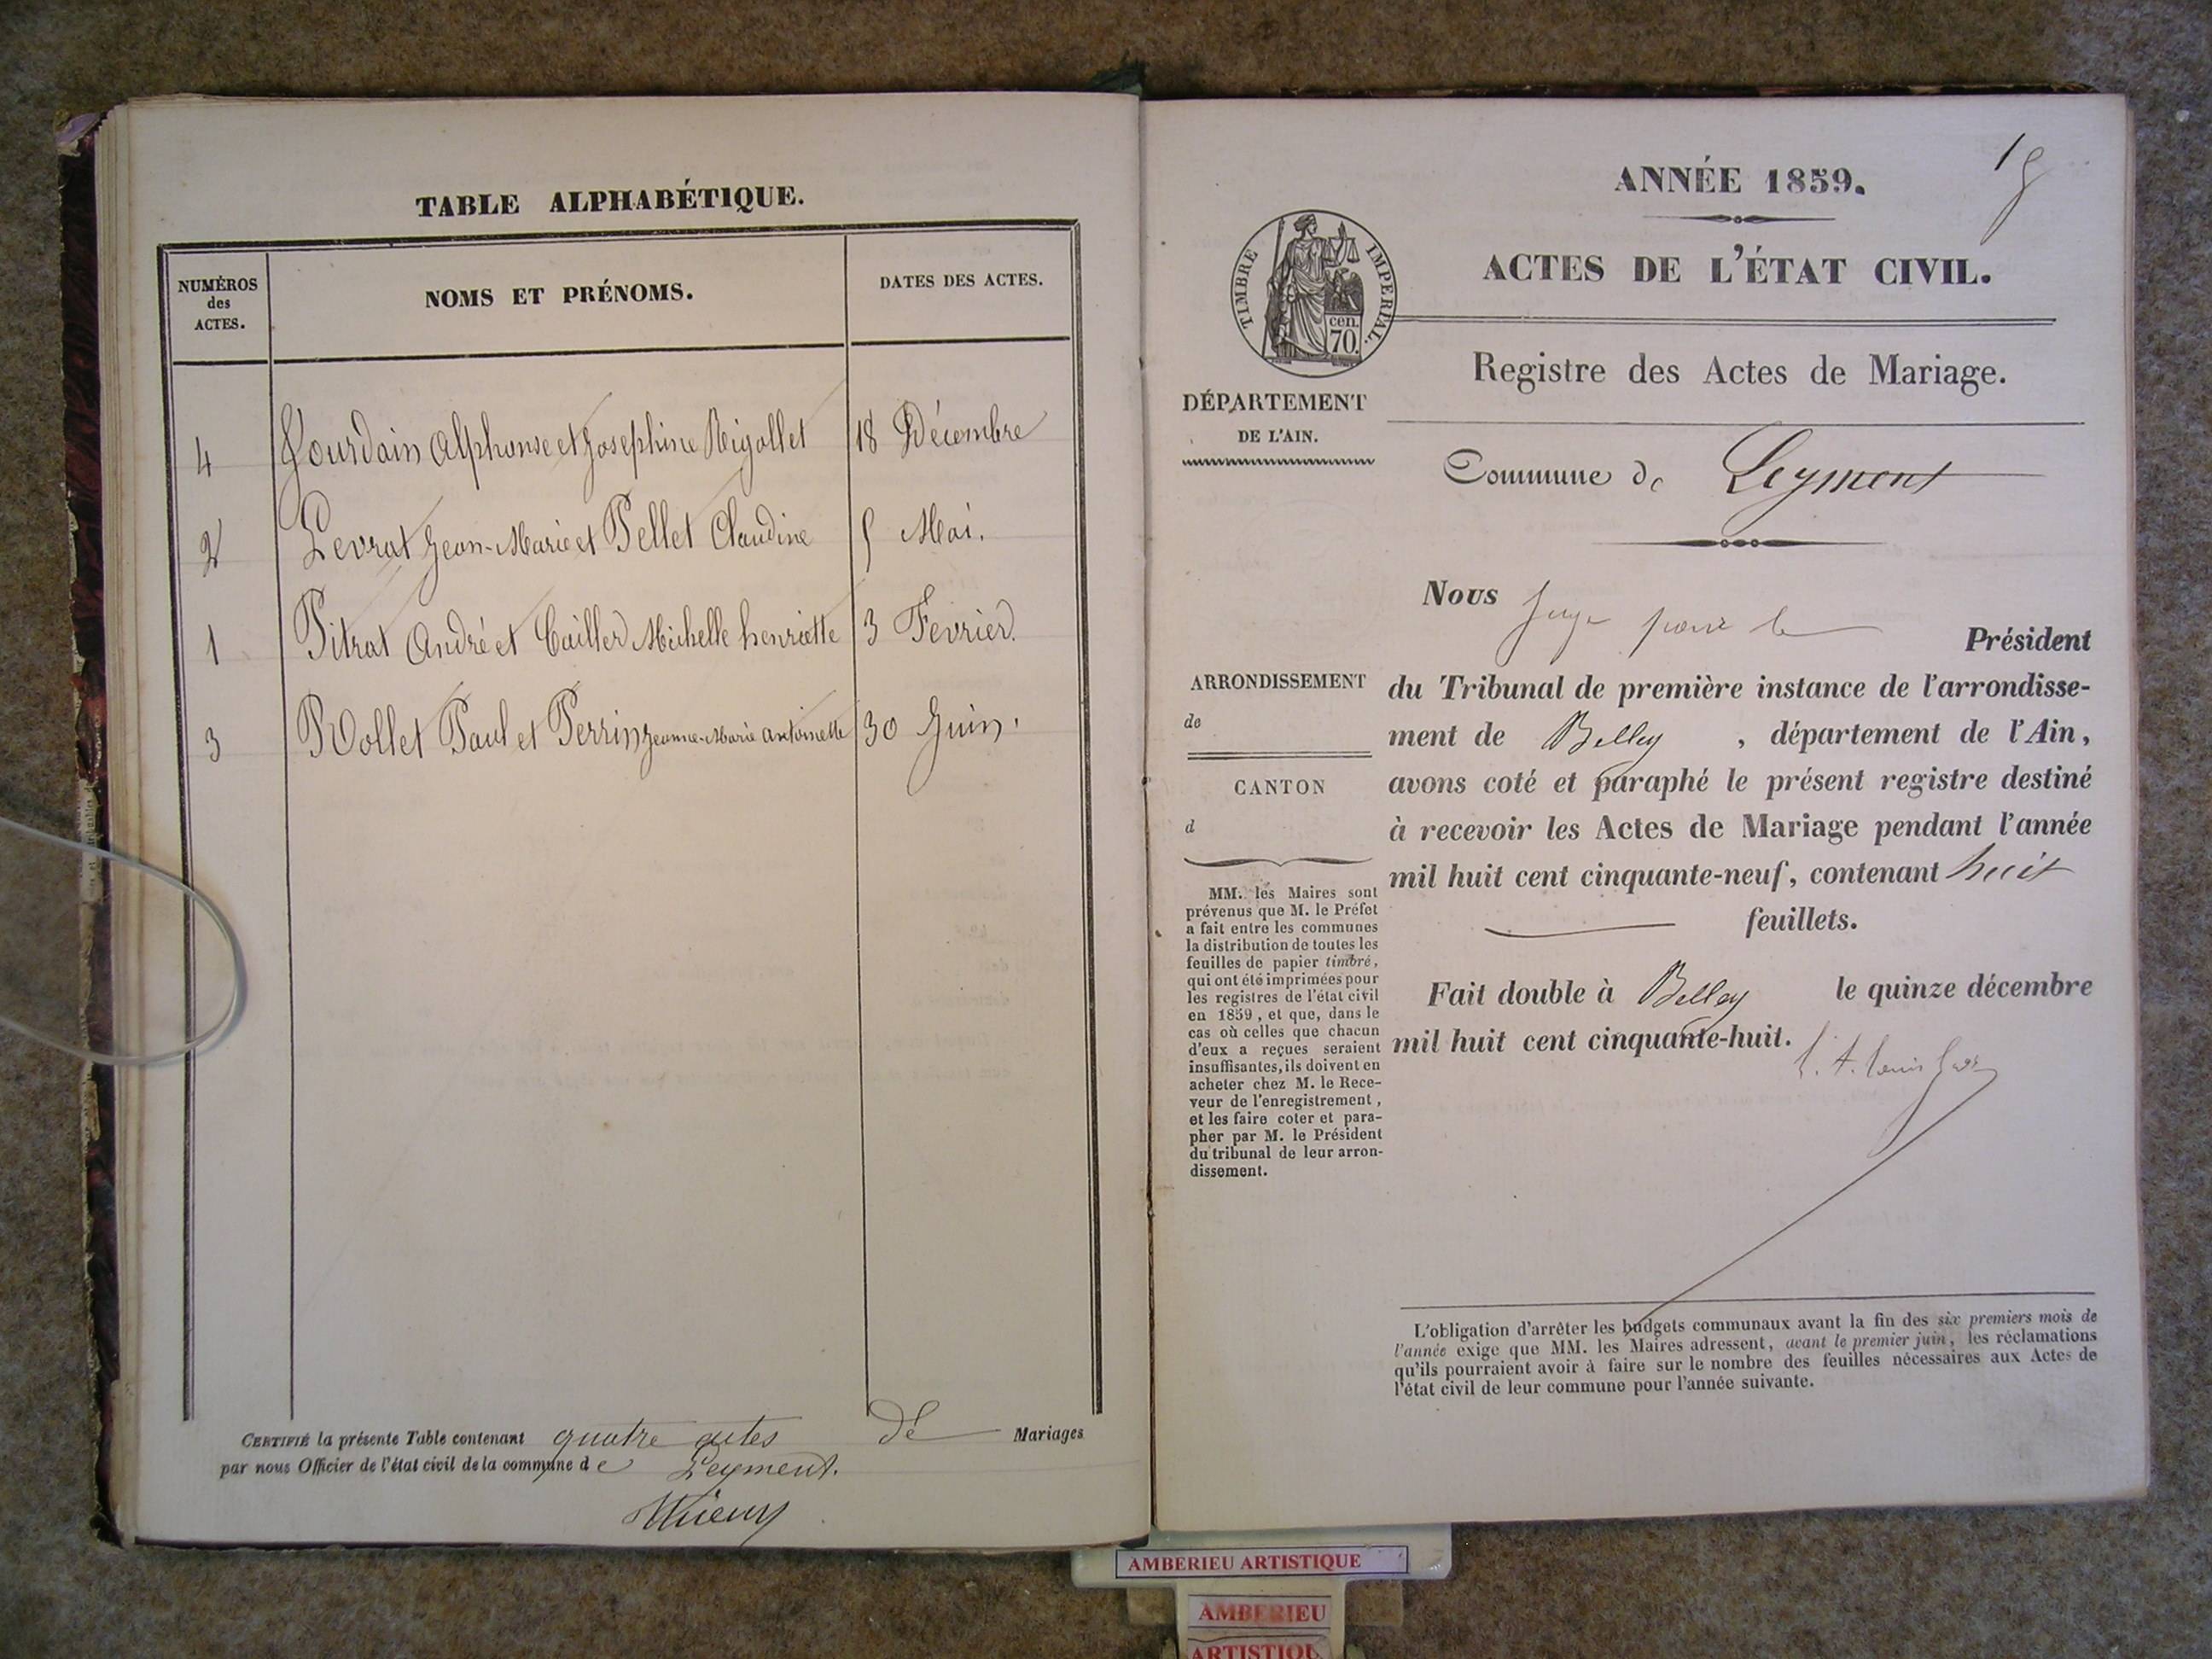 TABLE ALPHABÉTIQUE.
NUMÉROS
des
ACTES.
NOMS ET PRÉNOMS.
DATES DES ACTES.
4 Jourdain Alphonse et Josephine Rigollet 18 Décembre
2 Levrat Jean-Marie et Pellet Claudine 5 Mai.
1 Pitrat André et Caillet Michelle henriette 3 Fevrier.
3 Rollet Paul et Perrin Jeanne-Marie antoinette 30 Juin.
CERTIFIÉ la présente Table contenant quatre actes de Mariages
par nous Officier de l'état civil de la commune de Leyment.
ANNÉE 1859.
ACTES DE L'ÉTAT CIVIL.
TIMBRE IMPERIAL.
cen.
70.
Registre des Actes de Mariage.
DÉPARTEMENT
DE L'AIN.
Commune de Leyment
Nous Juge pour le
Président
ARRONDISSEMENT
de
CANTON
d
du Tribunal de première instance de l'arrondisse-
ment de Belley , département de l'Ain,
avons coté et paraphé le présent registre destiné
à recevoir les Actes de Mariage pendant l'année
mil huit cent cinquante-neuf, contenant huit
feuillets.
Fait double à Belley le quinze décembre
mil huit cent cinquante-huit.
MM. les Maires sont
prévenus que M. le Préfet
a fait entre les communes
la distribution de toutes les
feuilles de papier timbré,
qui ont été imprimées pour
les registres de l'état civil
en 1859, et que, dans le
cas où celles que chacun
d'eux a reçues seraient
insuffisantes, ils doivent en
acheter chez M. le Rece-
veur de l'enregistrement,
et les faire coter et para-
pher par M. le Président
du tribunal de leur arron-
dissement.
L'obligation d'arrêter les budgets communaux avant la fin des six premiers mois de
l'année exige que MM. les Maires adressent, avant le premier juin, les réclamations
qu'ils pourraient avoir à faire sur le nombre des feuilles nécessaires aux Actes de
l'état civil de leur commune pour l'année suivante.
AMBERIEU ARTISTIQUE
AMBERIEU
ARTISTIQU